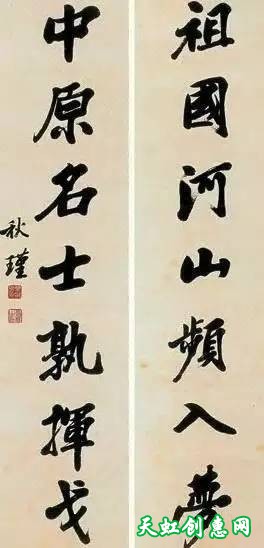 祖國河山頻入夢
中原名士孰揮戈
秋瑾
天虹创意网